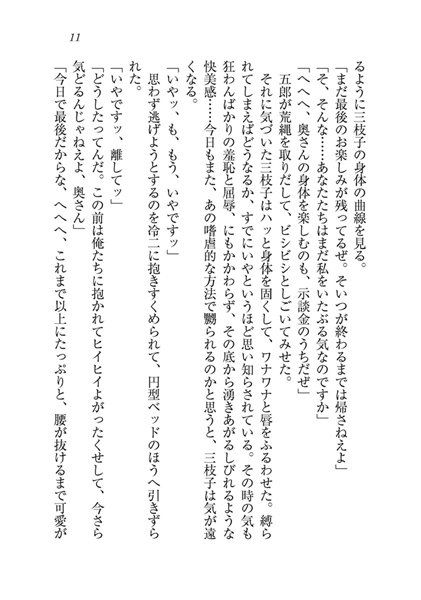 11
るように三枝子の身体の曲線を見る。
「まだ最後のお楽しみが残ってるぜ。そいつが終わるまでは帰さねえよ」
「そ、そんな……あなたたちはまだ私をいたぶる気なのですか」
「へへへ、奥さんの身体を楽しむのも、示談金のうちだぜ」
五郎が荒縄を取りだして、ビシビシとしごいてみせた。
それに気づいた三枝子はハッと身体を固くして、ワナワナと唇をふるわせた。縛ら
れてしまえばどうなるか、すでにいやというほど思い知らされている。その時の気も
狂わんばかりの羞恥と屈辱、にもかかわらず、その底から湧きあがるしびれるような
快美感……今日もまた、あの嗜虐的な方法で嬲られるのかと思うと、三枝子は気が遠
くなる。
「いやッ、も、もう、いやですッ」
思わず逃げようとするのを冷二に抱きすくめられて、円型ベッドのほうへ引きずら
れた。
「いやですッ、離してッ」
「どうしたってんだ。この前は俺たちに抱かれてヒイヒイよがったくせして、今さら
気どるんじゃねえよ、奥さん」
「今日で最後だからな、へへへ、これまで以上にたっぷりと、腰が抜けるまで可愛が